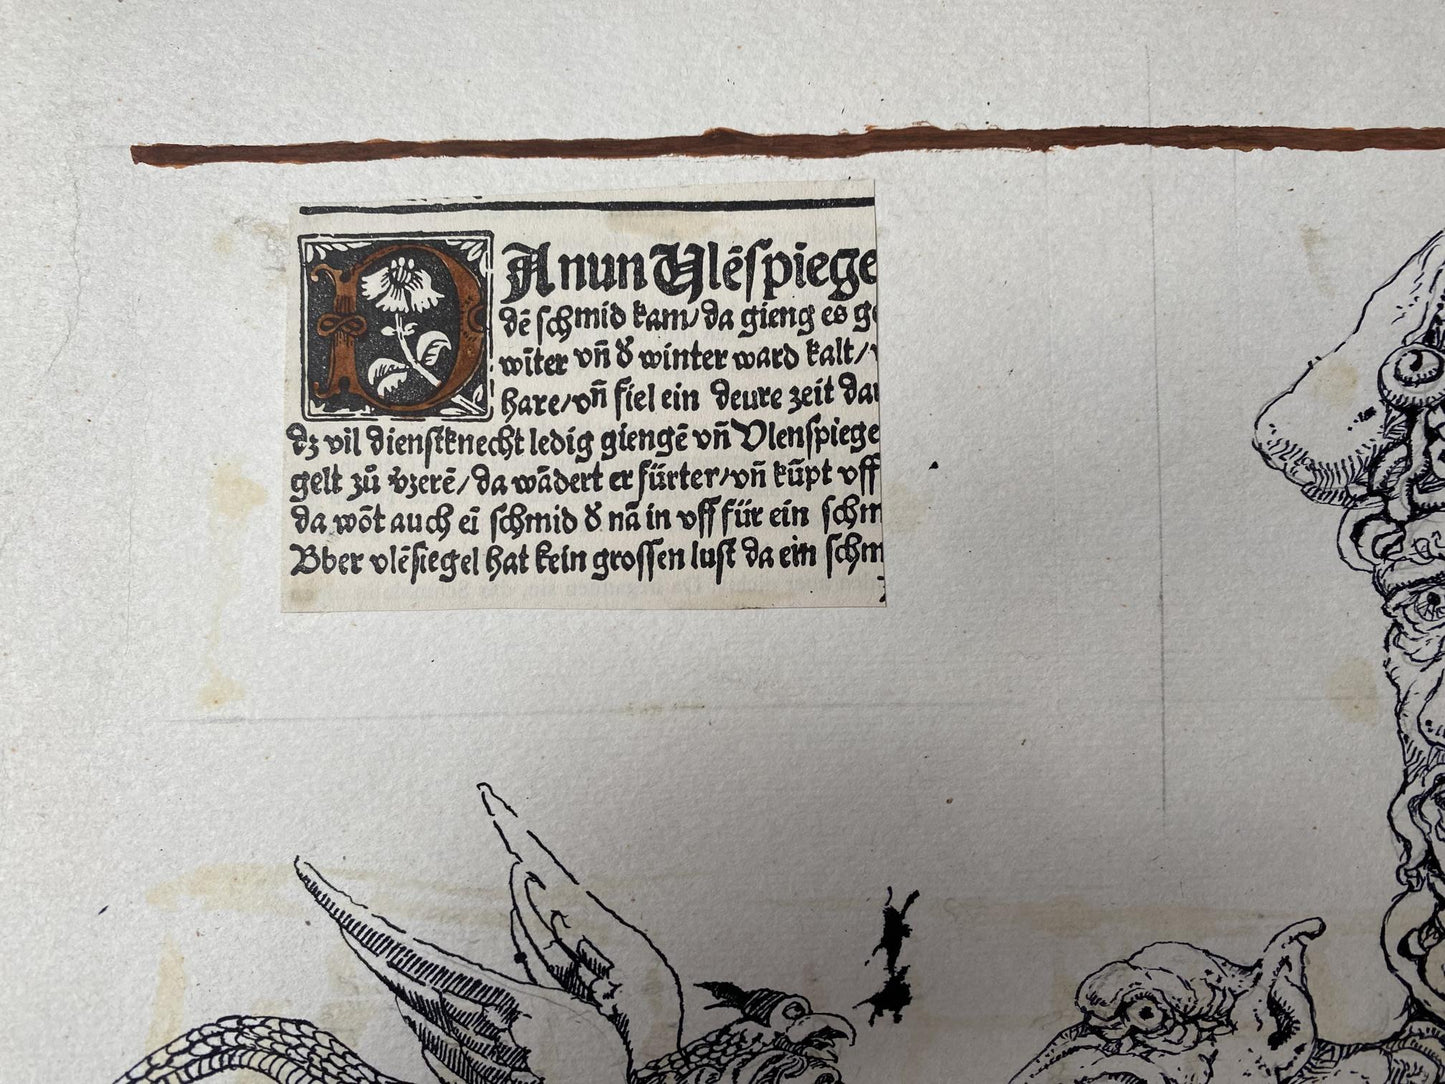 DAnun Ulēſpiege
dē ſchmid kam/ da gieng es
wīter vñ ð winter ward kalt/
hare/ vñ fiel ein deure zeit
dz vil dienſtknecht ledig giengē vñ Vlenſpiege
gelt zů vzerē/ da wādert er fürter/ vñ kūpt vff
da wōt auch eī ſchmid ð nā in vff für ein ſchm
Bber vlēſiegel hat kein groſſen luſt da ein ſchm